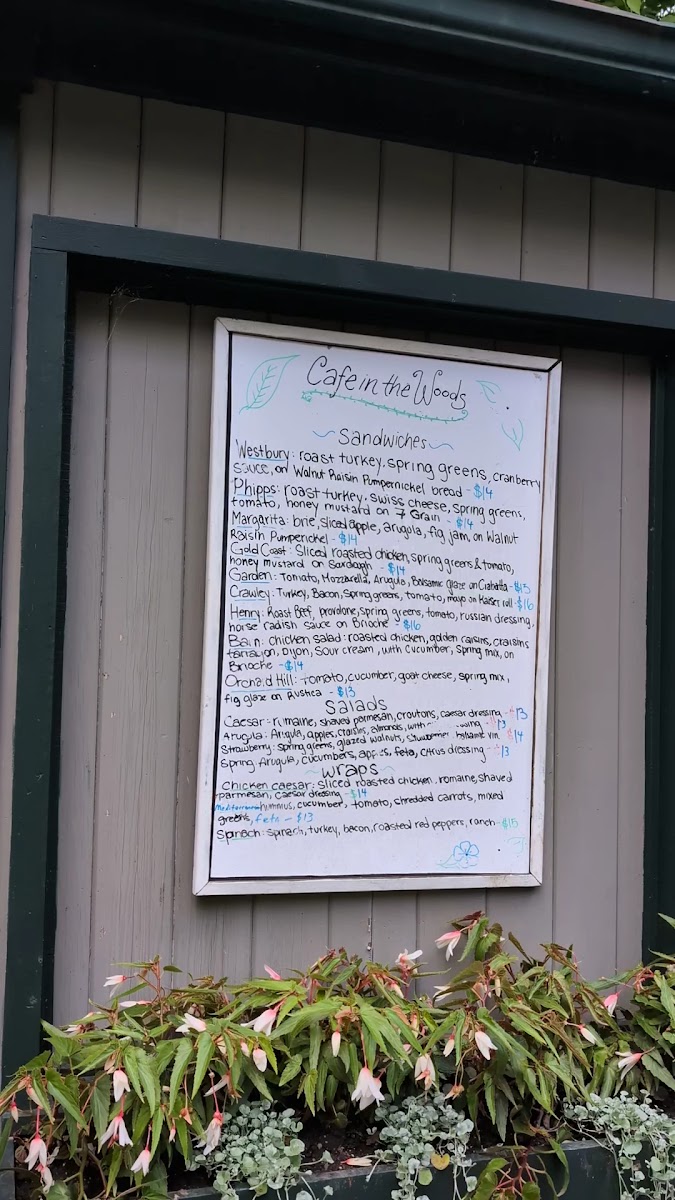 Cafe in the Woods
Sandwiches
Westbury: roast turkey, spring greens, cranberry
sauce, on Walnut Raisin Pumpernickel bread - $14
Phipps: roast turkey, swiss cheese, spring greens,
tomato, honey mustard on 7 Grain - $14
Margarita: brie, sliced apple, arugula, fig jam, on Walnut
Raisin Pumperickel - $14
Gold Coast: Sliced roasted chicken, spring greens & tomato,
honey mustard on Sardogh - $14
Garden: Tomato, Mozzarella, Arugula, Balsamic glaze on Ciabatta - $15
Crawley: Turkey, Bacon, Spring greens, tomato, mayo on Kaiser roll - $16
Henry: Roast Beef, provolone, spring greens, tomato, russian dressing,
horse radish sauce on Brioche - $16
Bain: chicken salad: roasted chicken, golden raisins, craisins
tarragon, Dijon, Sour cream, with cucumber, Spring mix, on
Brioche - $14
Orchard Hill: Tomato, cucumber, goat cheese, spring mix,
fig glaze on Rustica - $13
Salads
Caesar: romaine, shaved parmesan, croutons, caesar dressing - $13
Arugula: Arugula, apples, craisins, almonds, with $13
Strawberry: spring greens, glazed walnuts, balsamic vin. $14
Spring Arugula, cucumbers, apples, feta, citrus dressing - $13
wraps
Chicken caesar: Sliced roasted chicken, romaine, shaved
parmesan, caesar dressing - $14
Mediterranean hummus, cucumber, tomato, shredded carrots, mixed
greens, feta - $13
Spinach: spinach, turkey, bacon, roasted red peppers, ranch - $15